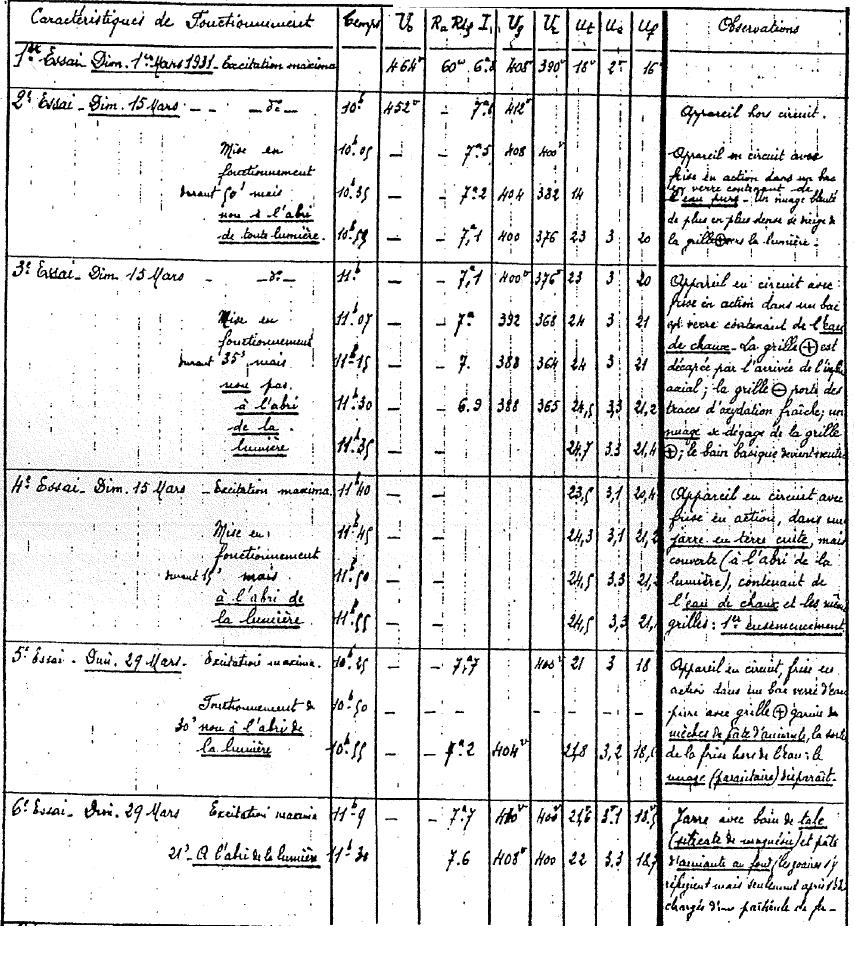 Caractéristiques de Fonctionnement Temps U₀ Ra Rhg I Ug Ur Ut Ue Uf Observations
1er Essai Dim. 1er Mars 1931 - Excitation maxima 464v 60w 408v 390v 18v 2v 16
2e Essai - Dim. 15 Mars - - - do - 10h 452v - 412v Appareil hors circuit.
Mise en 10h.05 - - 7a.5 408 400v Appareil en circuit avec
fonctionnement frise en action dans un bac
durant 50' mais 10h.35 - - 7a.2 404 382 14 en verre contenant de
l'eau pure - Un nuage
non à l'abri de plus en plus dense
de toute lumière. - - 7a,1 400 376 23 3 20 la grille ⊕ vers la lumière.
3e Essai - Dim. 15 Mars - - do - 11h - - 7a,1 400v 376v 23 3 20 Appareil en circuit avec
Mise en 11h.07 - - 7a. 392 368 24 3 21 frise en action dans un bac
fonctionnement verre contenant de l'eau
durant 35' mais 11h.15 - - 7. 388 364 24 3 21 de chaux - La grille ⊕ est
non pas décapée par l'arrivée de
à l'abri 11h.30 - - 6.9 388 365 24,5 3,3 21,2 axial ; la grille ⊖ porte des
de la traces d'oxydation fraîche ; un
lumière 11h.35 24,7 3.3 21,4 nuage se dégage de la grille
⊕ ; le bain basique devient neutre
4e Essai - Dim. 15 Mars - Excitation maxima. 11h40 - - 23,5 3,1 20,4 Appareil en circuit avec
Mise en 11h.45 - - 24,3 3,1 frise en action, dans une
fonctionnement jarre en terre cuite, mais
durant 15' mais 11h.50 - - 24,5 3.3 couverte (à l'abri de la
à l'abri de lumière), contenant de
la lumière. 11h.55 - - 24,5 3,3 l'eau de chaux et les mêmes
grilles : 1er ensemencement
5e Essai - Dim. 29 Mars - Excitation maxima. 10h.25 - - 7,a7 400v 21 3 18 Appareil en circuit, frise en
action dans un bac verre d'eau
Fonctionnement de 10h.50 - - - - - - - - pure avec grille ⊕ garnie de
30' non à l'abri de mèches de pâte d'amiante, la sortie
la lumière 10h.55 - - 7a.2 404v 21,8 3,2 de la frise hors de l'eau : le
nuage (parasitaire) disparaît.
6e Essai - Dim. 29 Mars Excitation maxima 11h.9 - - 7a.7 400v 21v6 3v.1 Jarre avec bain de talc
(silicate de magnésie) et pâte
21' - A l'abri de la lumière 11h.30 7.6 408v 400 22 3.3 d'amiante au four
réfugient mais seulement après
chargés d'une particule de